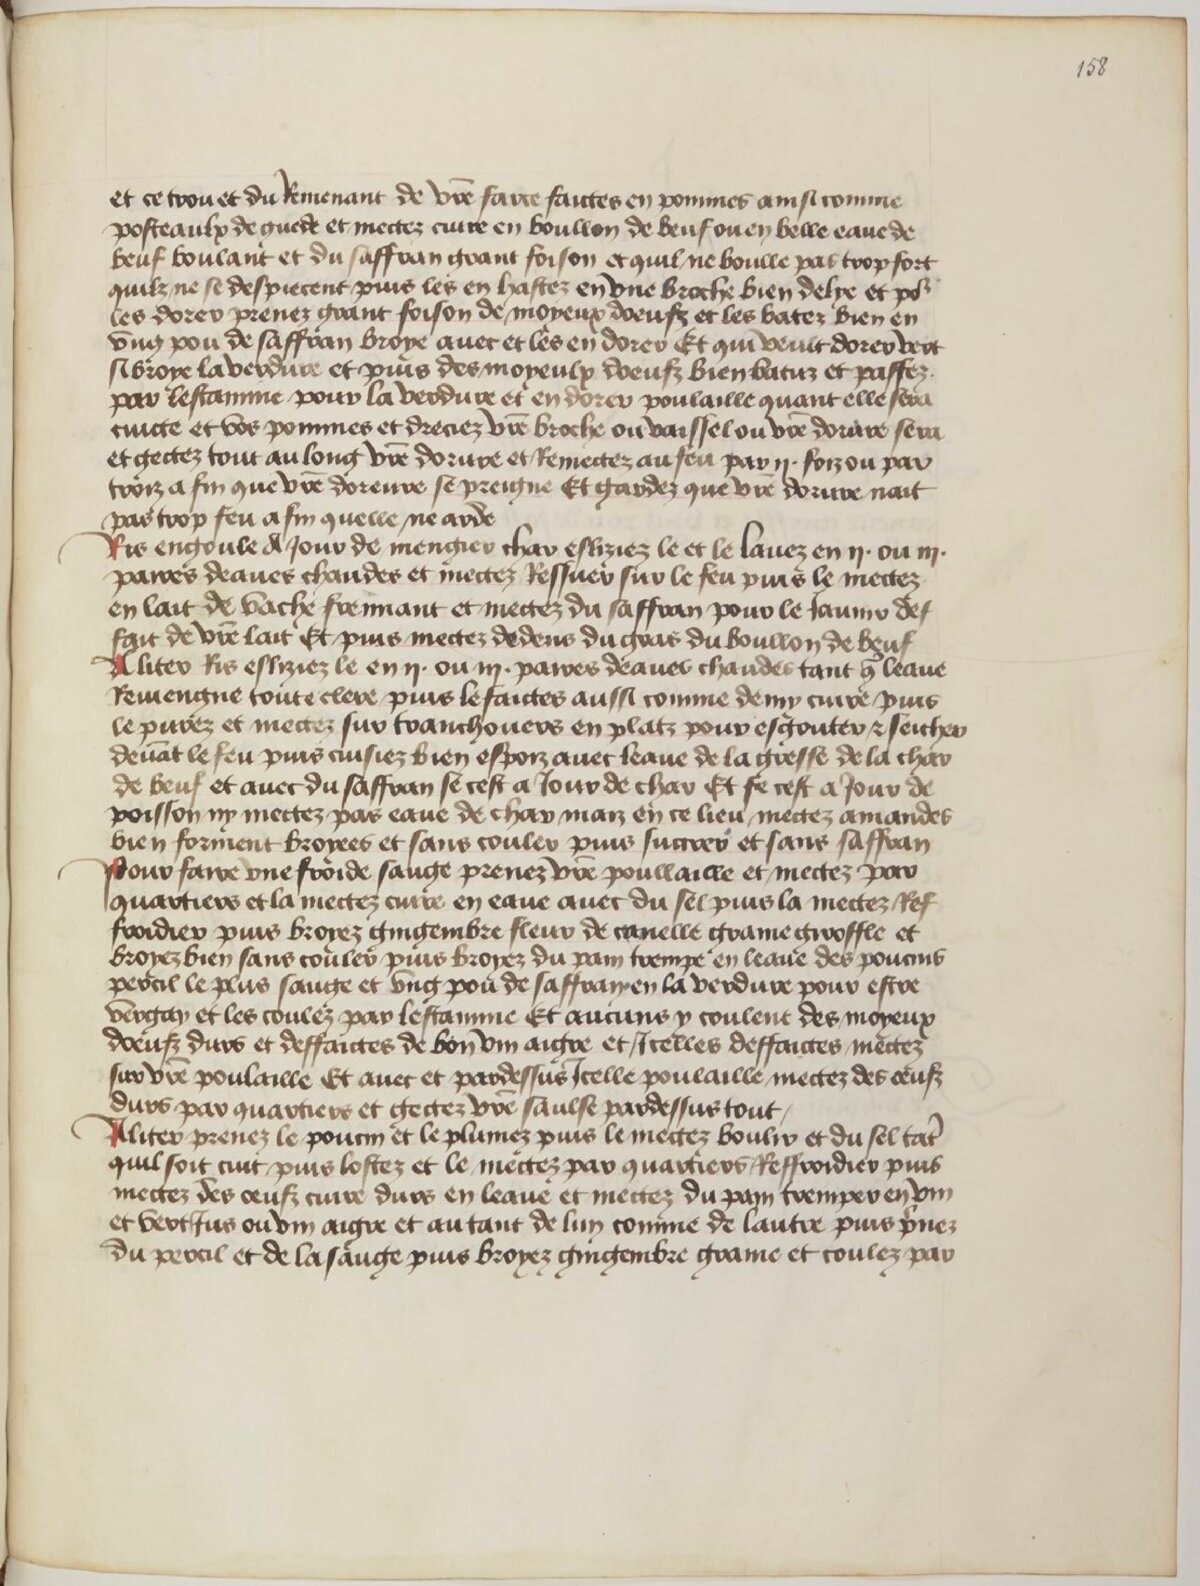 158
et ce trou et du Remenant de vr̃e farce faictes en pommes ainsi comme
posteaulx de guede et mectez cuire en boullon de beuf ou en belle eaue de
beuf boulant et du saffran grant foison et quil ne boulle pas trop fort
quilz ne se despiecent puis les en hastez en vne broche bien delye et po᷑
les dorer prenez grant foison de moyeux doeufz et les batez bien en
vng pou de saffran broye auec et les en dorez Et qui veult dorer vert
si broye la verdure et puis des moyeulx doeufz bien batuz et passez
par lestamine pour la verdure et en dorez poulaille quant elle sera
cuicte et voz pommes et dreciez vr̃e broche ou vaissel ou vr̃e dorure sera
et gectez tout au long vr̃e dorure et Remectez au feu par ij. foiz ou par
troiz a fin que vr̃e doreure se preigne Et gardez que vr̃e dorure nait
pas trop feu a fin quelle ne arde
Ris engoule A Jour de mengier char esliziez le et le lauez en ij. ou iij.
paires deaues chaudes et mectez Ressuer sur le feu puis le mectez
en lait de vache fremiant et mectez du saffran pour le Jaunir def
fait de vr̃e lait Et puis mectez dedens du gras du boullon de beuf
Aliter Ris esliziez le en ij. ou iij. paires deaues chaudes tant q̃ leaue
Reuiengne toute clere puis le faictes aussi comme demy cuire puis
le purez et mectez sur tranchouers en platz pour esgouter & seicher
deuãt le feu puis cuisiez bien espoiz auec leaue de la gresse de la char
de beuf et auec du saffran se cest a Jour de char Et se cest a Jour de
poisson ny mectez pas eaue de char maiz en ce lieu mectez amandes
bien forment broyees et sans couler puis succrer et sans saffran
Pour faire vne froide sauge prenez vr̃e poullaille et mectez par
quartiers et la mectez cuire en eaue auec du sel puis la mectez Ref
froidier puis broyez gingembre fleur de canelle graine gyroffle et
broyez bien sans couler puis broyez du pain trempe en leaue des poucins
percil le plus sauge et vng pou de saffran en la verdure pour estre
vergay et les coulez par lestamine Et aucuns y coulent des moyeux
doeufz durs et deffaictes de bon vin aigre et Jcelles deffaictes mectez
sur vr̃e poulaille Et auec et pardessus Jcelle poulaille mectez des oeufz
durs par quartiers et gectez vr̃e saulse pardessus tout /
Aliter prenez le poucin et le plumez puis le mectez boulir et du sel tãt
quil soit cuit puis lostez et le mectez par quartiers Reffroidier puis
mectez des oeufz cuire durs en leaue et mectez du pain tremper en vin
et vertJus ou vin aigre et autant de lun comme de lautre puis p̃nez
du percil et de la sauge puis broyez gingembre graine et coulez par